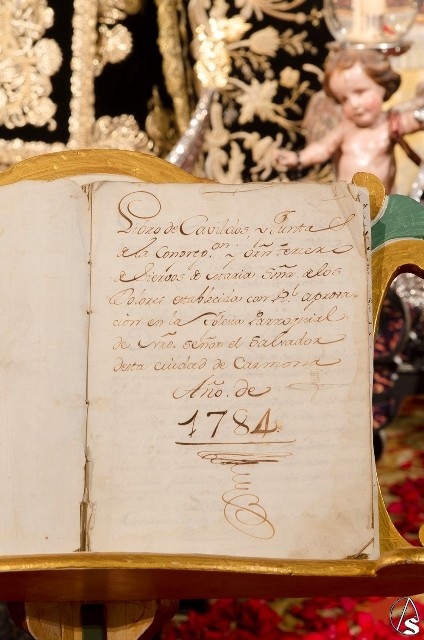 Libro de Cavildos, y Junta
de la Congreg.on y Orn tercera
de Siervos de Maria Señr.a de los
Dolores establecida con Rl. aproва-
cion en la Iglesia Parroquial
de Nro. señor el Salvador
desta ciudad de Carmona
Año. de
1784.
AS